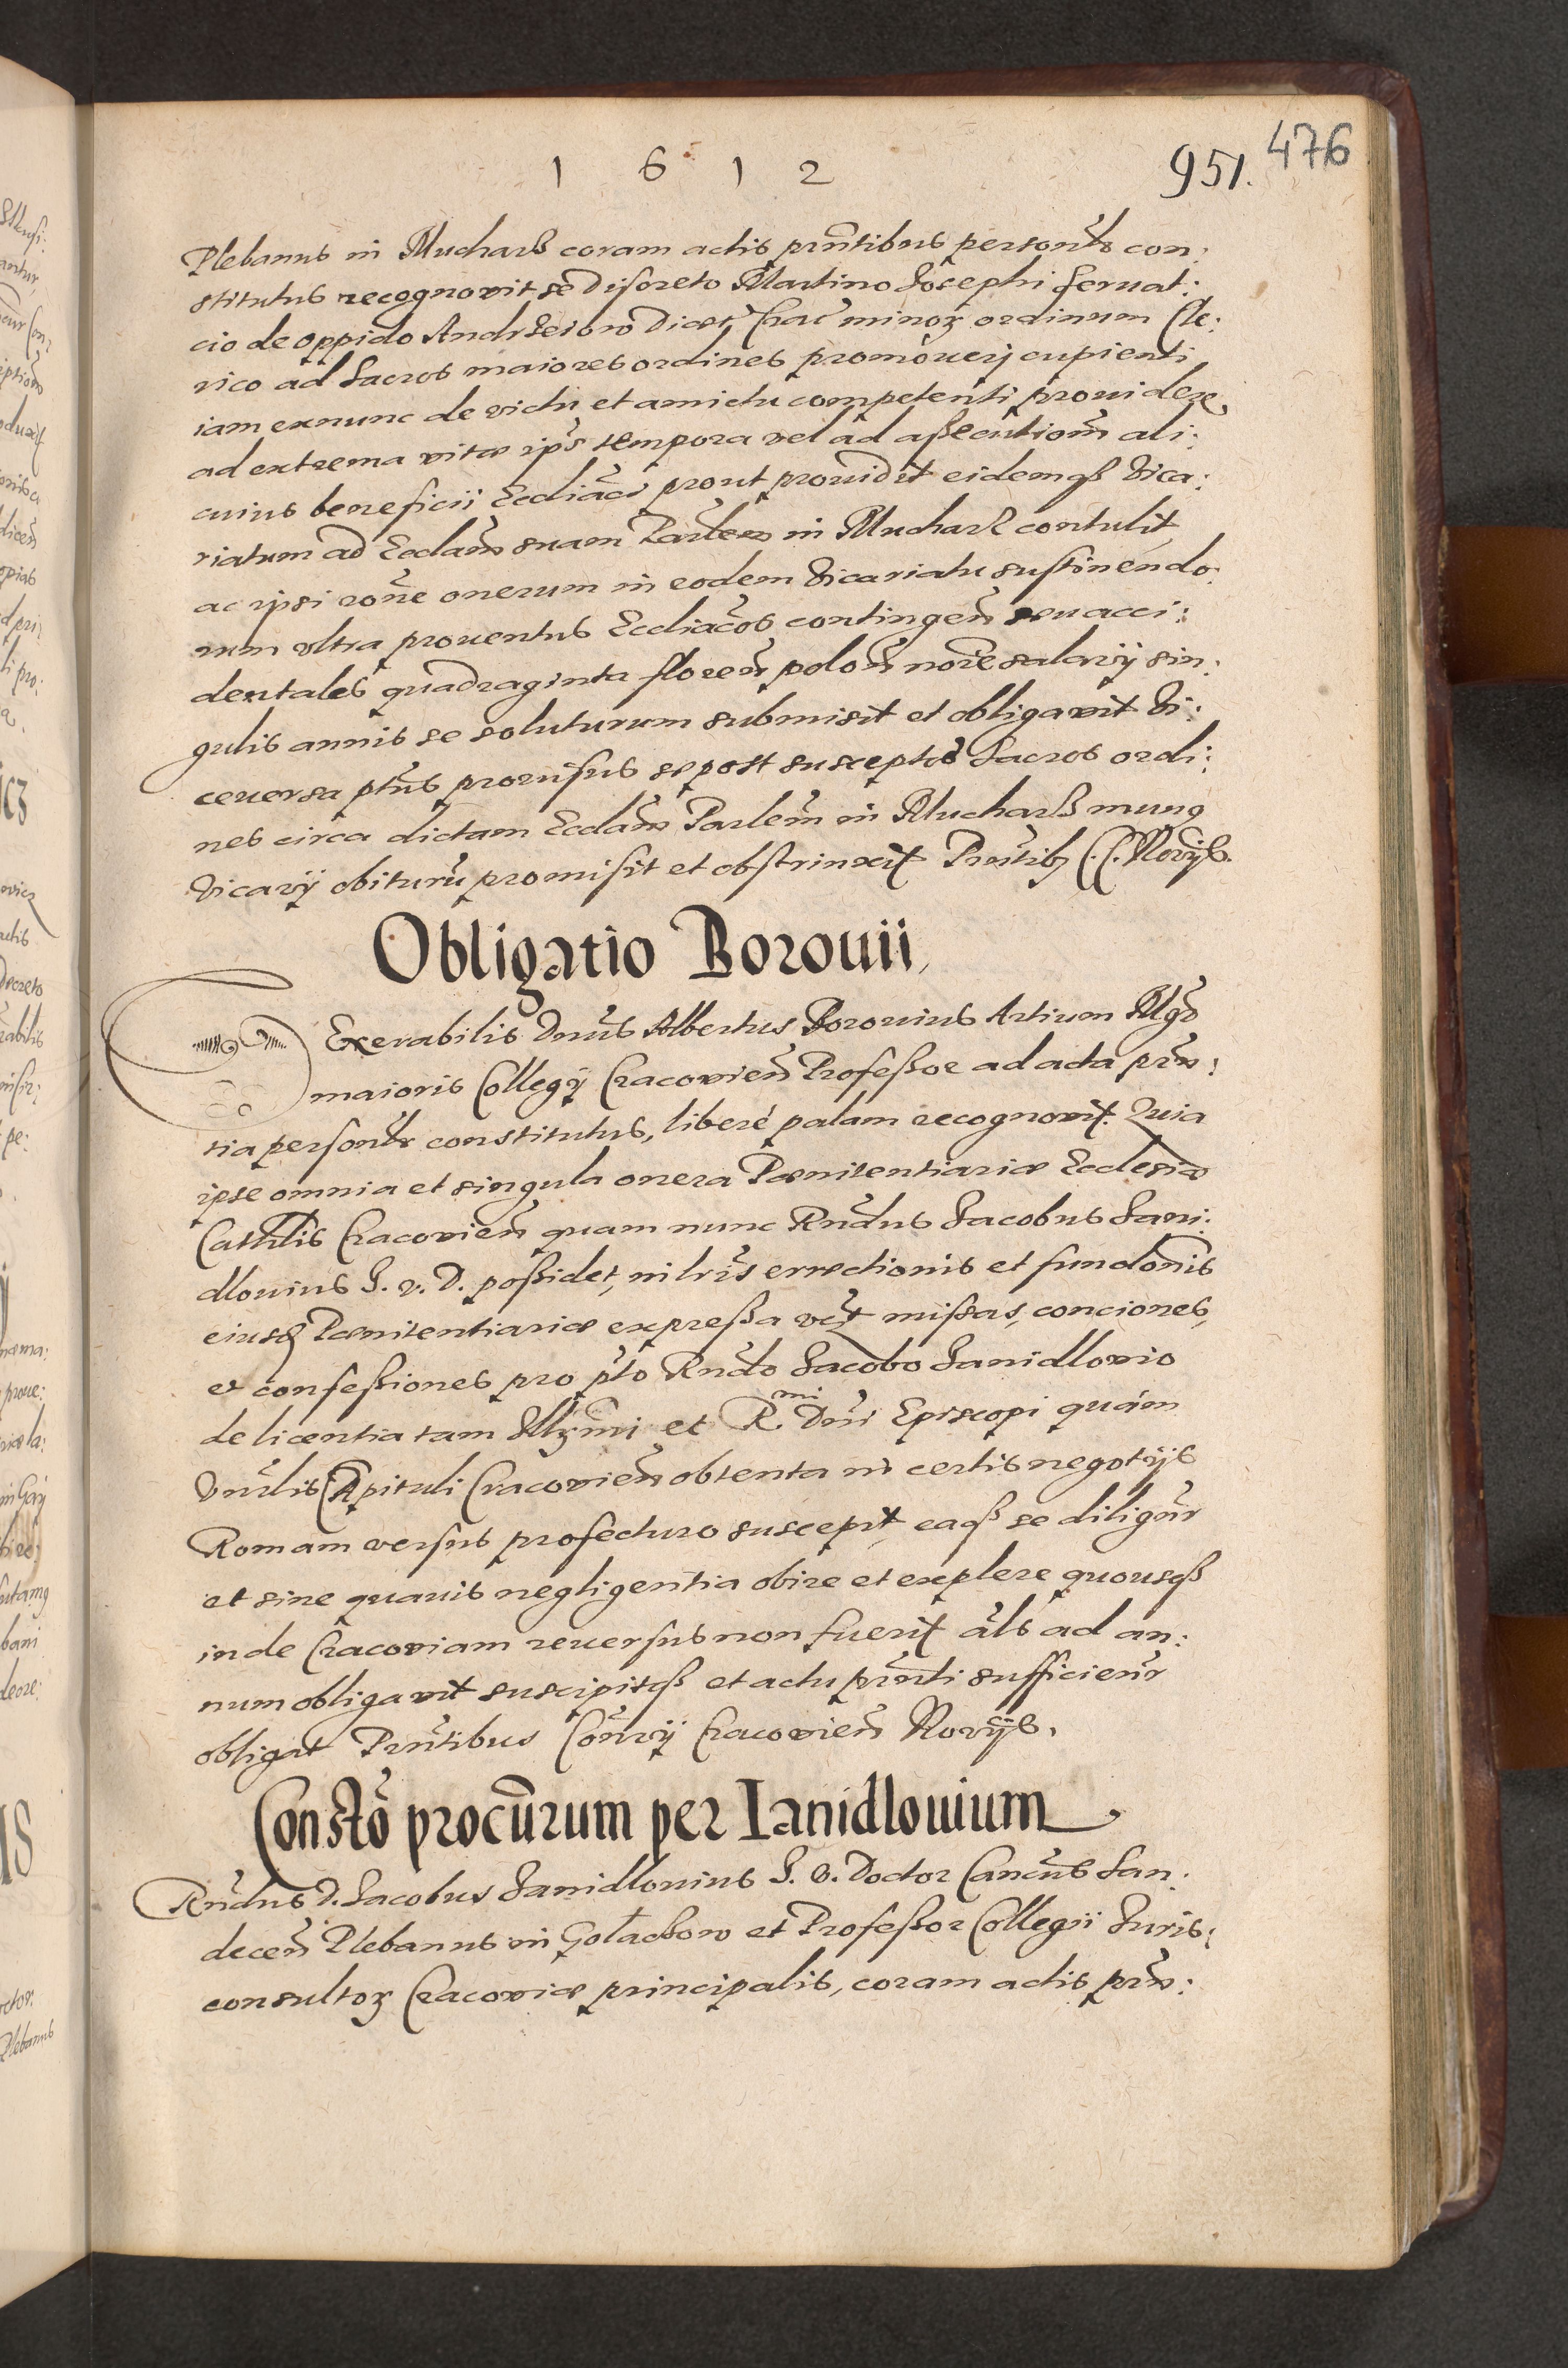 1 6 1 2
951. 476
Plebanus in Mucharß coram actis prñtibus personlr con:
stitutus recognovit se Discreto Martino Josephi Servat:
cio de oppido Andrzeiow Diœc Crac minorʒ ordinum Cle:
rico ad Sacros maiores ordines promoverj cupienti
iam exnunc de victu et amictu competenti providere
ad extrema vitæ ipˢ tempora vel ad aßecutionẽ ali:
cuius beneficii Eccliãci prout providit eidemqß Vica:
riatum ad Ecclãm suam Parlem in Mucharß contulit,
ac ipsi rone onerum in eodem Vicariatu sustinendo:
rum ultra proventus Eccliãcos contingeñ seu acci:
dentales quadraginta floreñ poloñ noie salarij sin:
gulis annis se soluturum submisit et obligavit Vi:
ceversa ptus provisus se post susceptos Sacros ordi:
nes circa dictam Ecclãm Parlem in Mucharß munq
Vicarij obiturũ promisit et obstrinxit Prñtibʒ C. C. Norijs.
Obligatio Borouii,
Venerabilis Dnus Albertus Borovius Artium Mgr
maioris Collegij Cracovieñ Profeßor ad acta prñ:
tia personlr constitutus, liberé palam recognovit. Quia
ipse omnia et singula onera Pœnitentiariæ Ecclesiæ
Cathlis Cracovieñ quam nunc Rñdus Jacobus Jani:
dlovius J. v. D. poßidet, in lris errectionis et fundonis
eiusd Pœnitentiariæ expreßa vct mißas, conciones,
et confeßiones pro pto Rndo Jacobo Janidlovio
de licentia tam Illʒmi et R.mi Dni Episcopi quám
Vnrlis Capituli Cracovieñ obtenta in certis negotijs
Romam versus profecturo suscepit, eaqß se diligñr
et sine quavis negligentia obire et explere quousqß
inde Cracoviam reversus non fuerit als ad an:
num obligavit suscipitqß et actu prñti sufficieñr
obligat Prñtibus Consrij Cracovieñ Norijs.
Constõ procũrum per Ianidlouium
Rñdus D. Jacobus Janidlovius J. V. Doctor Cancus San:
deceñ Plebanus in Gołaczow et Profeßor Collegii Juris:
consultorʒ Cracoviæ principalis, coram actis prñ: